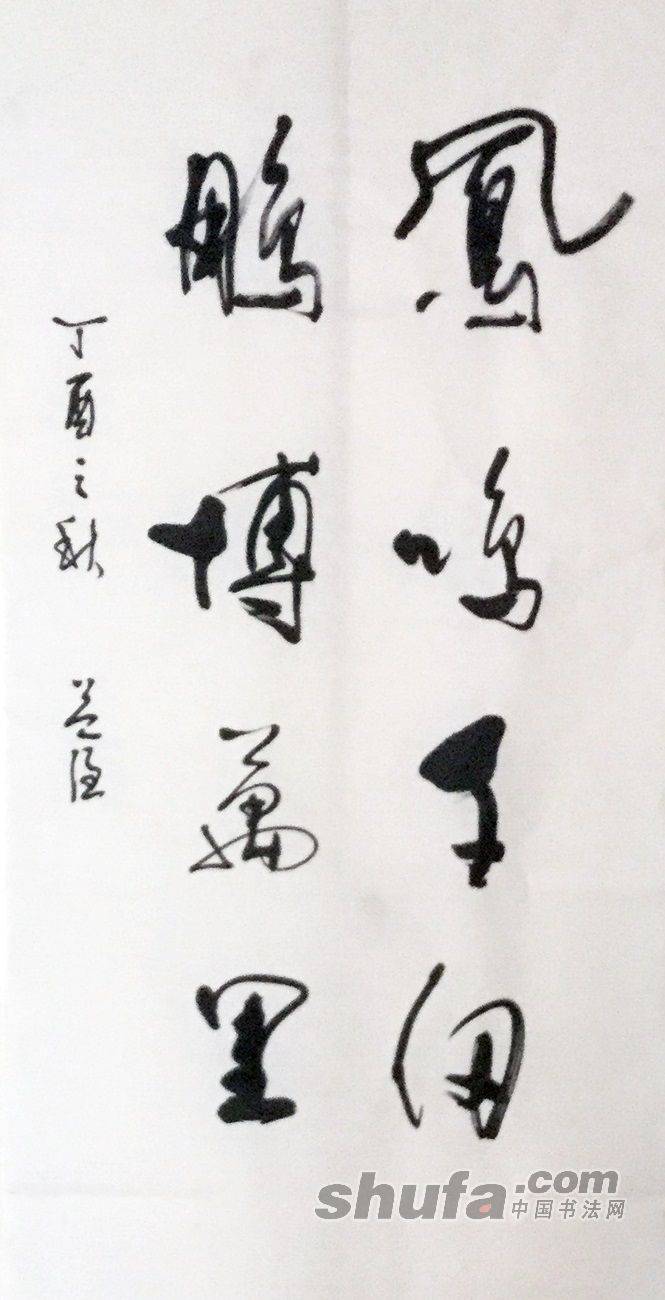 鳳鳴千仞
鵬博萬里
丁酉之秋
shufa.com
中国书法网